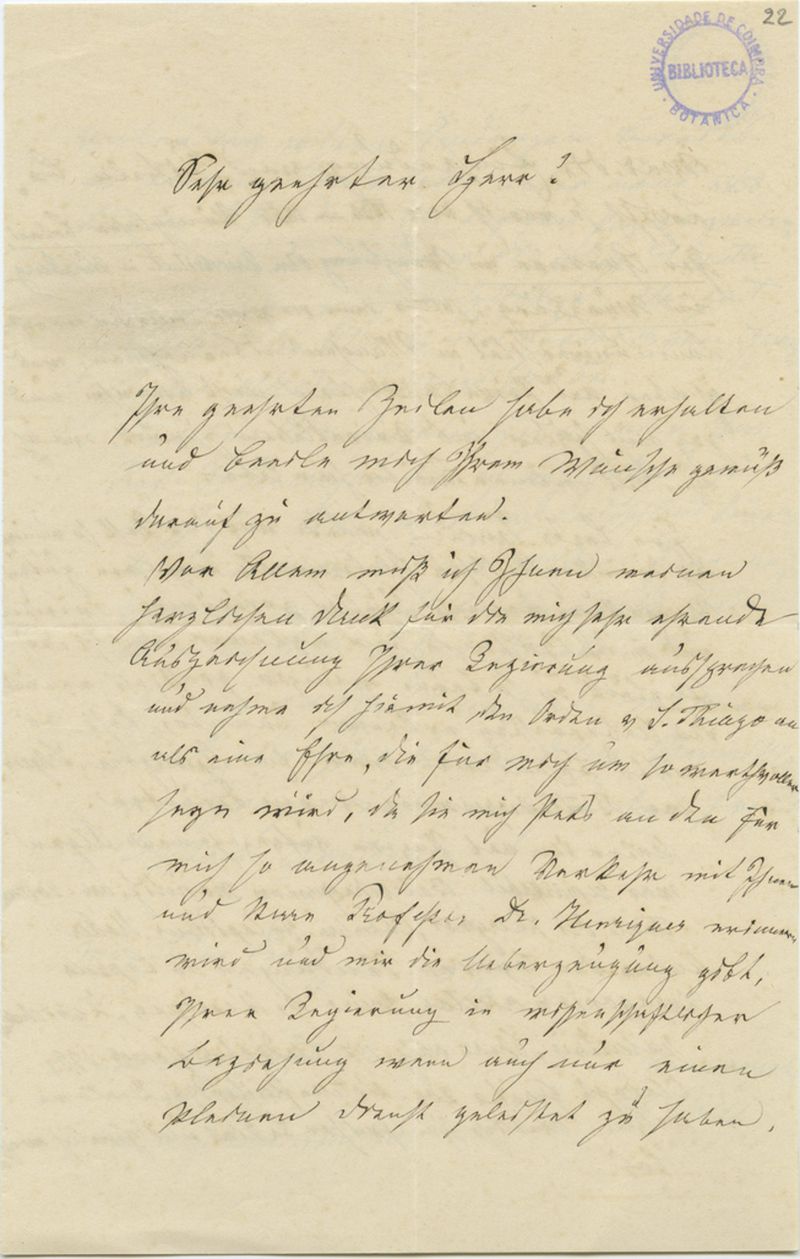 22
UNIVERSIDADE DE COIMBRA
BIBLIOTECA
BOTANICA
Sehr geehrter Herr!
Ihre geehrten Zeilen habe ich erhalten
und beeile mich Ihrem Wunsche gemäß
darauf zu antworten.
Vor Allem muß ich Ihnen meinen
herzlichen Dank für die mich sehr ehrende
Auszeichnung Ihrer Regierung aussprechen
und nehme ich hiemit den Orden v S. Thiago an
als eine Ehre, die für mich um so werthvoller
seyn wird, da sie mich stets an den für
mich so angenehmen Verkehr mit Ihnen
und Herrn Professor Dr. Henriques erinnern
wird und mir die Ueberzeugung gibt,
Ihrer Regierung in wissenschaftlicher
Beziehung wenn auch nur einen
kleinen Dienst geleistet zu haben.